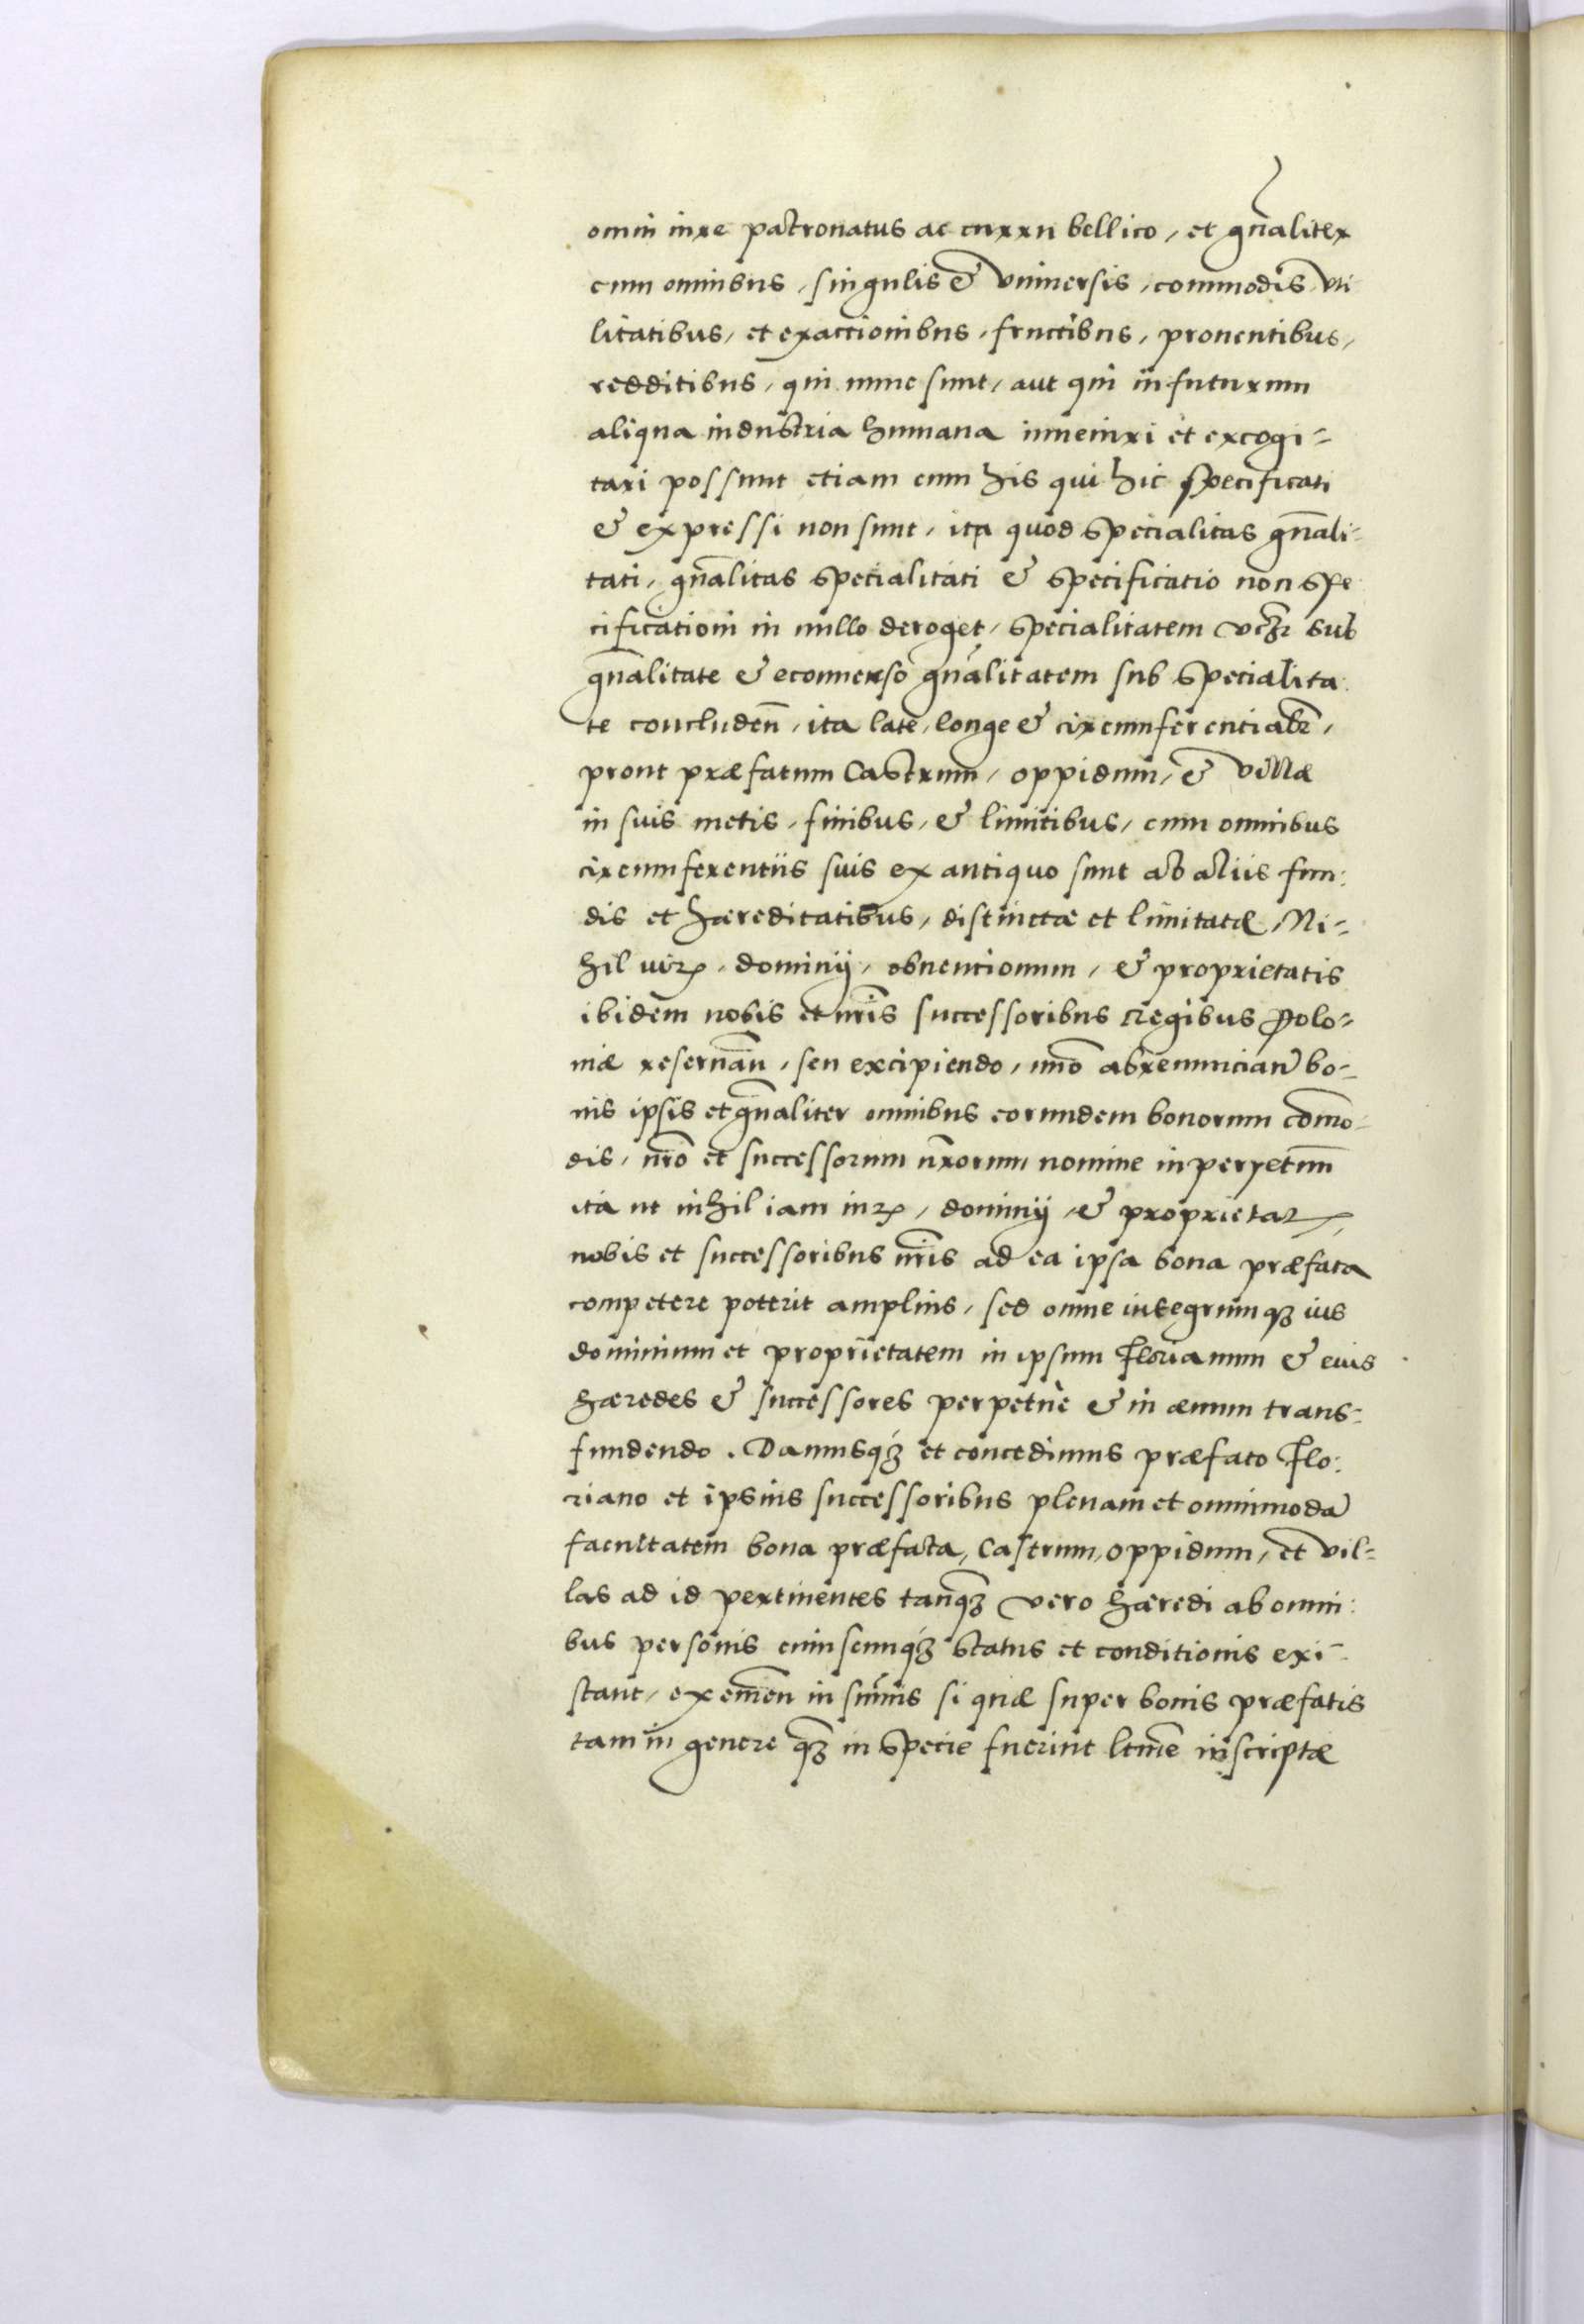 omni iure patronatus ac curru bellico, et gnaliter
cum omnibus, singulis & vniuersis, commodis, vti
litatibus, et exactionibus, fructibus, prouentibus,
redditibus, qui nunc sunt, aut qui in futurum
aliqua industria humana inueniri et excogi=
tari possunt etiam cum his qui hic specificati
& expressi non sunt, ita quod specialitas gnali=
tati, gnalitas specialitati & specificatio non spe
cificationi in nullo deroget, specialitatem sub
gnalitate & econuerso gnalitatem sub specialita:
te concluden, ita late, longe & circumferentialr,
prout præfatum Castrum, oppidum, & villæ
in suis metis, finibus, & limitibus, cum omnibus
circumferentiis suis ex antiquo sunt ab aliis fun:
dis et hæreditatibus, distinctæ et limitatæ, Ni=
hil iur, dominij, obuentionum, & proprietatis
ibidem nobis et nris successoribus Regibus Polo=
niæ reseruan, seu excipiendo, imo abrenuncian bo=
nis ipsis et gnaliter omnibus eorundem bonorum como=
dis, nro et successorum nrorum nomine in perpetuum
ita ut nihil iam iur, dominij & proprietat
nobis et successoribus nris ad ea ipsa bona præfata
competere poterit amplius, sed omne integrumq3 ius
dominium et proprietatem in ipsum Florianum & eius
hæredes & successores perpetuè & in æuum trans=
fundendo. Damusq3 et concedimus præfato Flo:
riano et ipsius successoribus plenam et omnimoda
facultatem bona præfata, Castrum, oppidum, et vil=
las ad id pertinentes tanq3 vero hæredi ab omni:
bus personis cuiuscumq3 status et conditionis exi=
stant, exemen in summis si quæ super bonis præfatis
tam in genere q3 in specie fuerint ltme inscriptæ